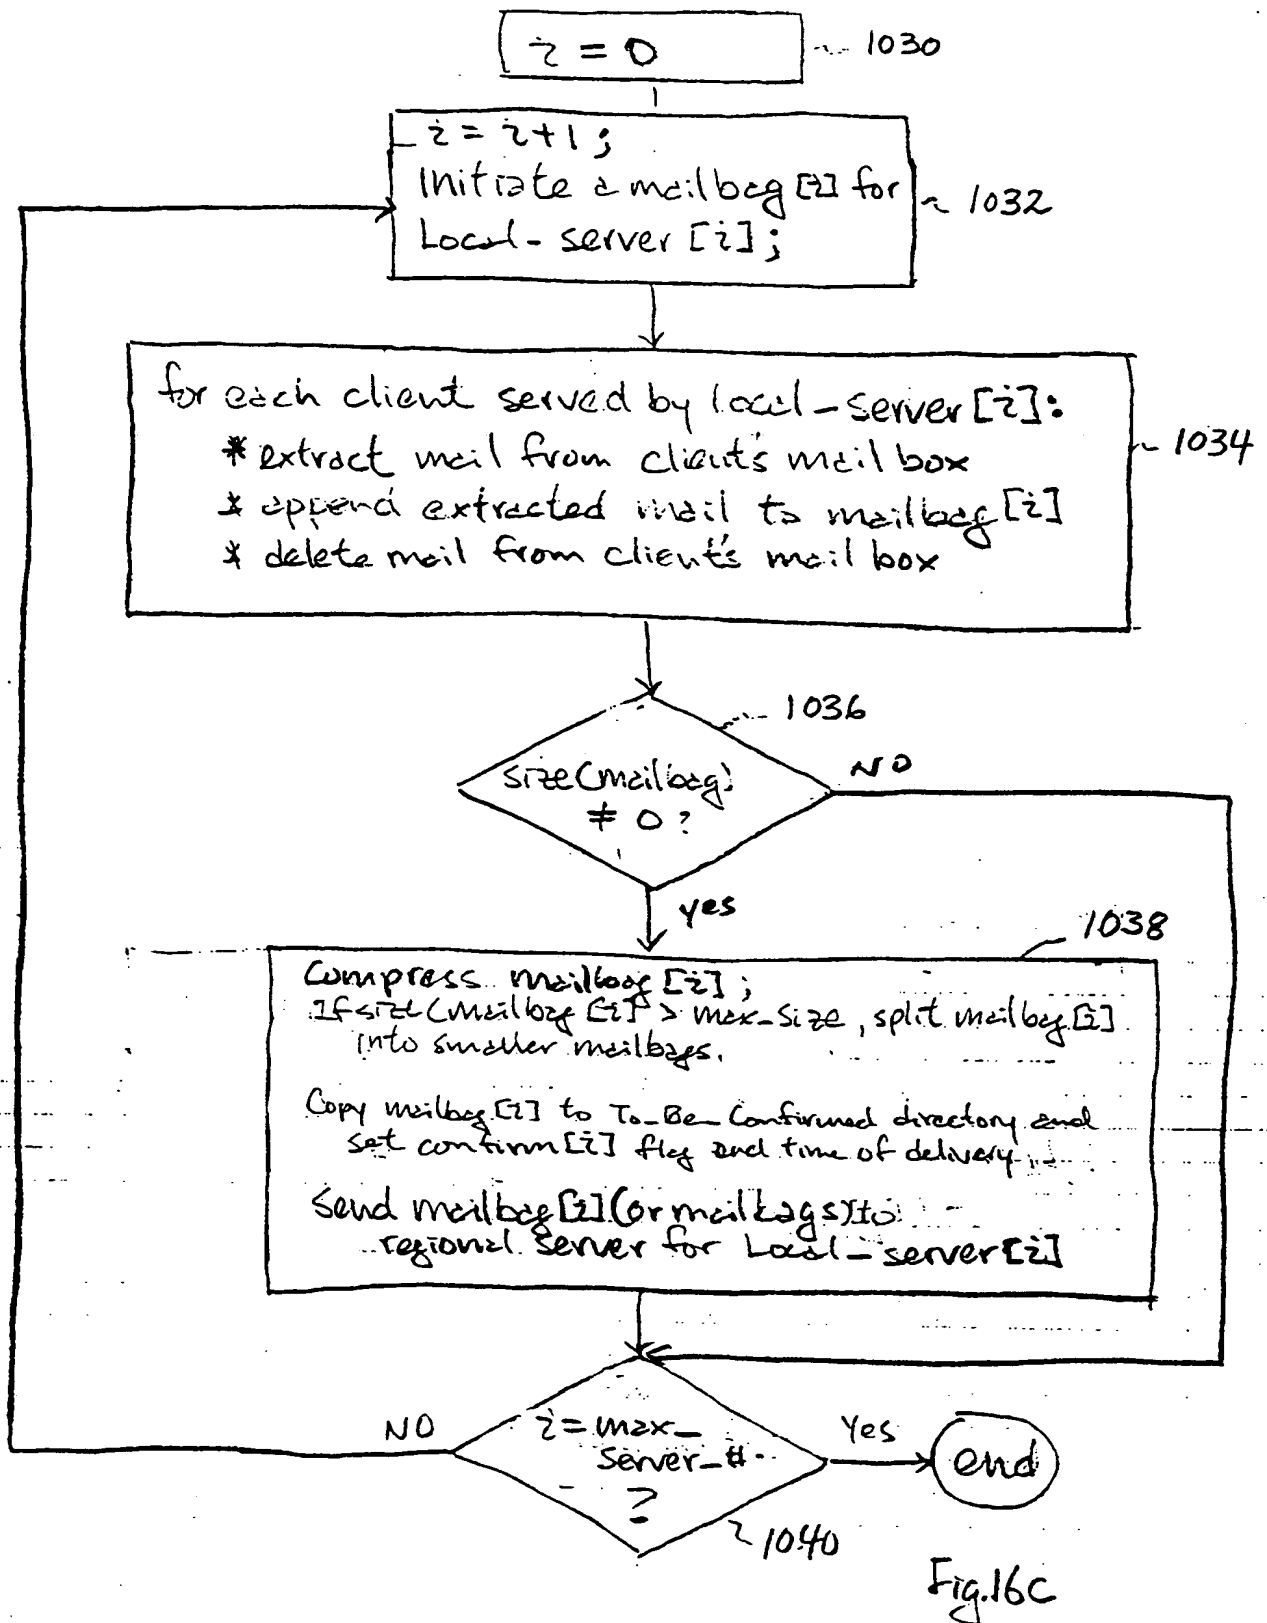 i = 0
1030
i = i+1 ;
Initiate a mailbag [i] for
Local-server [i];
1032
for each client served by local-server [i]:
* extract mail from client's mail box
* append extracted mail to mailbag [i]
* delete mail from client's mail box
1034
1036
size(mailbag)
≠ 0 ?
NO
yes
1038
Compress mailbag [i] ;
If size (mailbag [i] > max_size, split mailbag [i]
into smaller mailbags.
Copy mailbag [i] to To_Be_Confirmed directory and
set confirm [i] flag and time of delivery
Send mailbag [i] (or mailbags) to
regional server for Local-server [i]
NO
i = max_
server_#
?
Yes
end
1040
Fig.16C